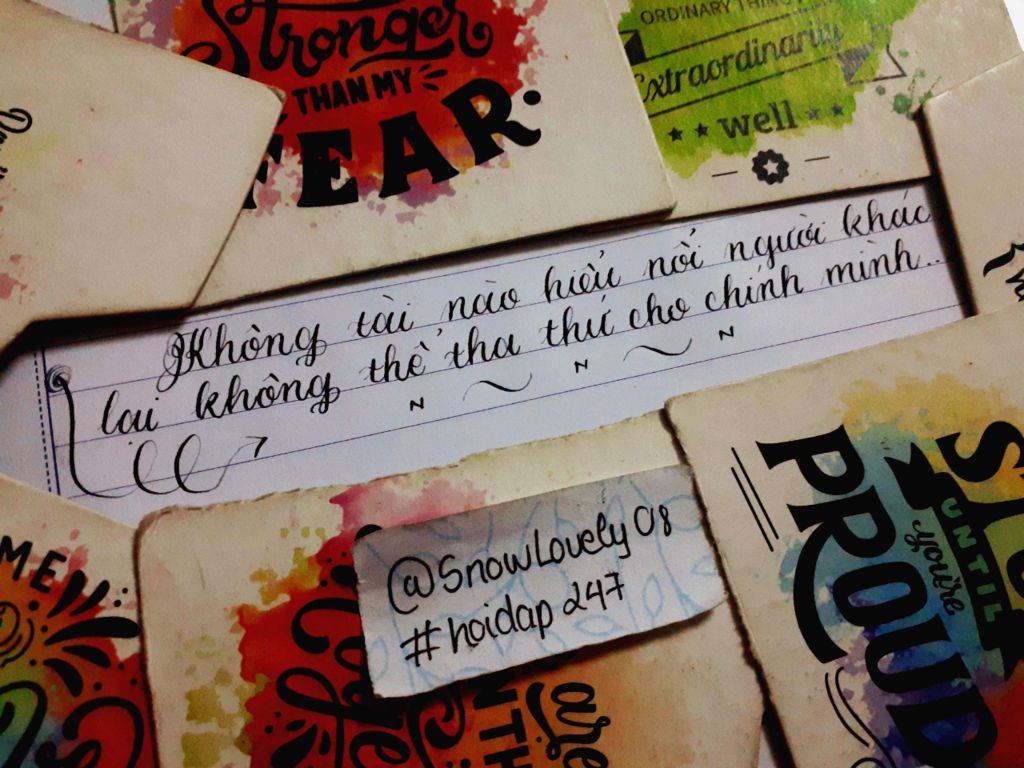 Stronger
THAN MY
FEAR.
ORDINARY
Extraordinarily
well
Không tài nào hiểu nổi người khác
lại không thể tha thứ cho chính mình..
N N N
@SnowLovely08
#hoidap247
ME
are
UNTIL
you're
PROUD